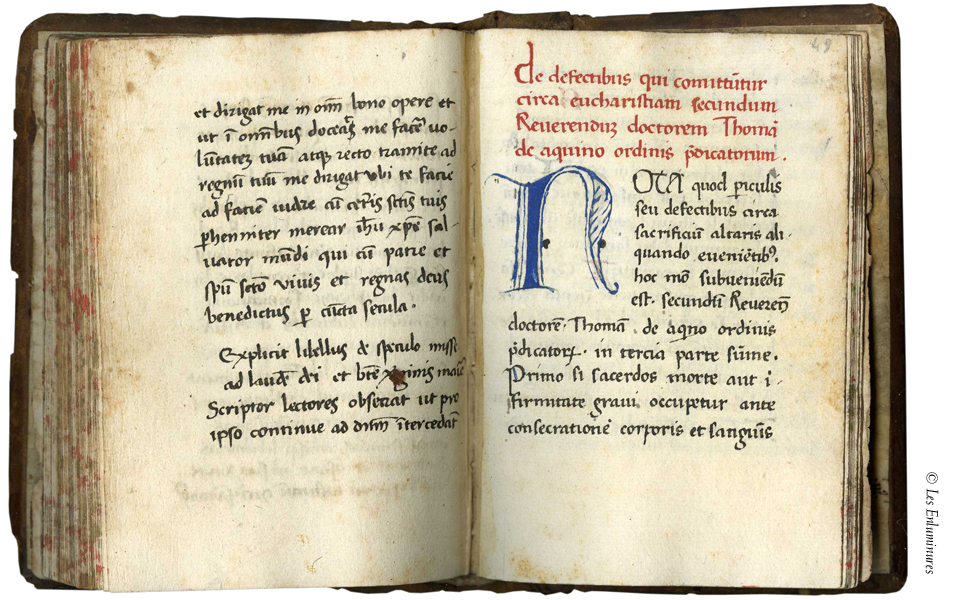 et dirigat me in om̄i bono opere et
ut ī om̄ibus doceas me facē vo-
lūtatez tuā atqꝫ recto tramite ad
regnū tuū me dirigat vbi te facie
ad faciē videre cū cet̄is sctīs tuis
ꝑhenniter merear ih̄u xp̄e sal-
uator mūdi qui cū patre et
spū sctō viuis et regnas deus
benedictus ꝑ cūcta secula.
Explicit libellus de speculo misse
ad laudē dei et btē v̄ginis marie
Scriptor lectores obsecrat ut pro
ipso continue ad dn̄m ītercedāt
48
de defectibus qui comittūtur
circa eucharistiam secundum
Reuerenduz doctorem Thomā
de aquino ordinis p̄dicatorum.
NOTA quod periculis
seu defectibus circa
sacrificiū altaris ali-
quando eueniētibꝰ.
hoc mō subueniēdū
est. secundū Reuerēn
doctorē. Thomā. de aqno ordinis
p̄dicatoꝝ. in tercia parte sūme.
Primo si sacerdos morte aut ī-
firmitate graui occupetur ante
consecrationē corporis et sanguīs
© Les Enluminures